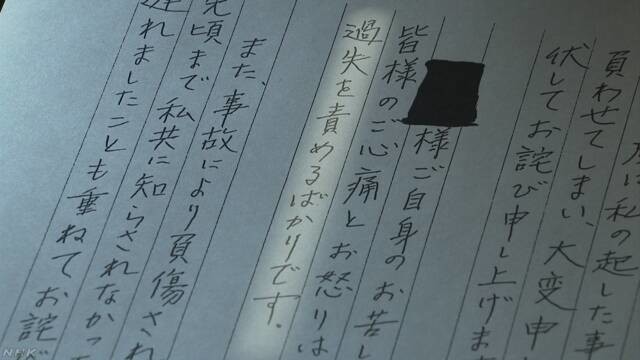 は私の起した事
負わせてしまい、大変申
伏してお詫び申し上げま
様ご自身のお苦し
皆様のご心痛とお怒りは
過失を責めるばかりです。
また、事故により負傷され
先頃まで私共に知らされなかった
遅れましたことも重ねてお詫び
NHK